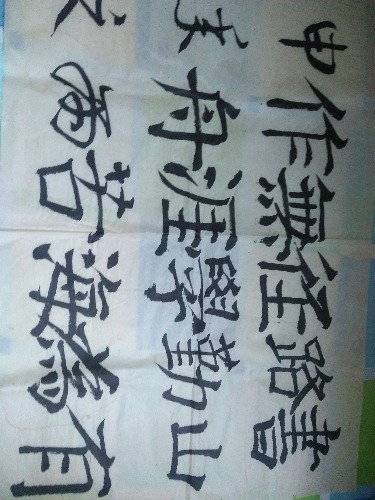 書山有
路勤為
徑學海
無涯苦
作舟